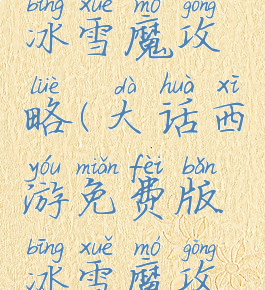 bīng xuě mó gōng
冰雪魔攻
lüè dà huà xī
略(大话西
yóu miǎn fèi bǎn
游免费版
bīng xuě mó gōng
冰雪魔攻